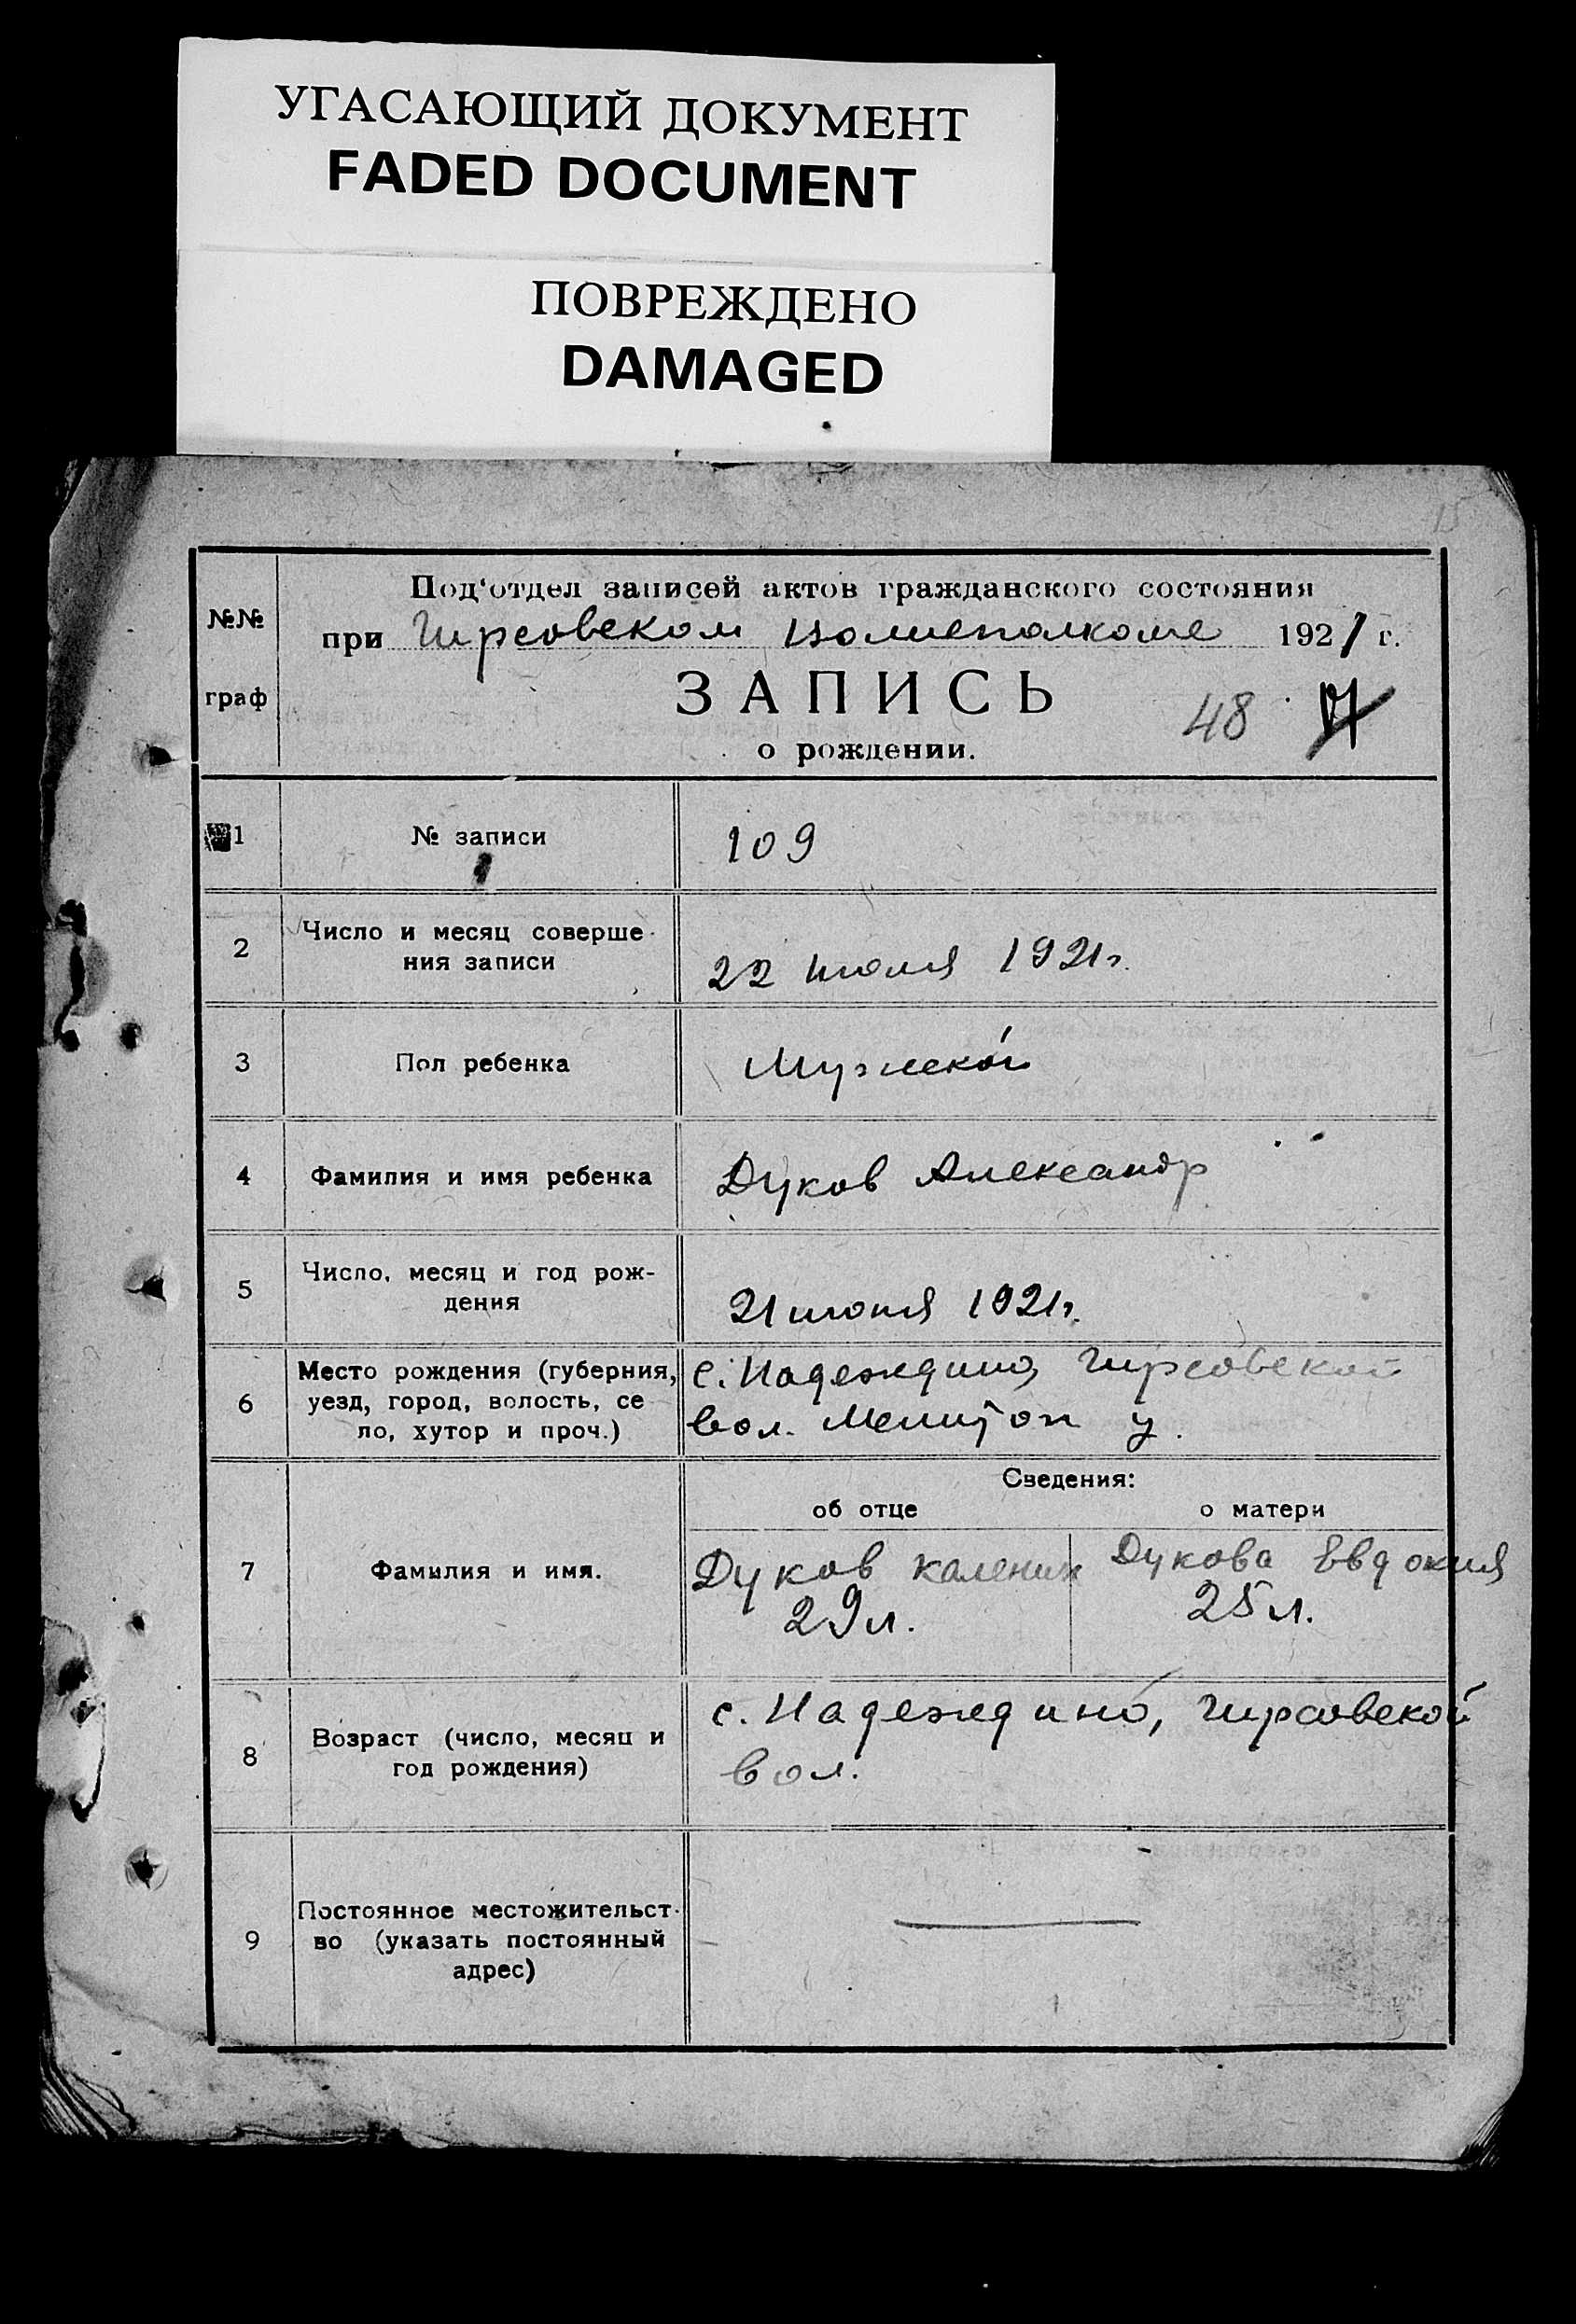 УГАСАЮЩИЙ ДОКУМЕНТ
FADED DOCUMENT
ПОВРЕЖДЕНО
DAMAGED
15
№№
граф
Под'отдел записей актов гражданского состояния
при Гирсовском 1921 г.
ЗАПИСЬ
48
о рождении.
1 № записи 109
2 Число и месяц соверше-
ния записи 22 июля 1921 г.
3 Пол ребенка Мужской
4 Фамилия и имя ребенка Дуков Александр
5 Число, месяц и год рож-
дения 21 июня 1921 г.
6 Место рождения (губерния,
уезд, город, волость, се
ло, хутор и проч.)
с. Надеждино, Гирсовской
вол. Мелитоп у.
Сведения:
об отце о матери
7 Фамилия и имя.
Дуков Каленик Дукова Евдокия
29 л. 25 л.
8 Возраст (число, месяц и
год рождения)
с. Надеждино, Гирсовской
вол.
9 Постоянное местожительст-
во (указать постоянный
адрес)